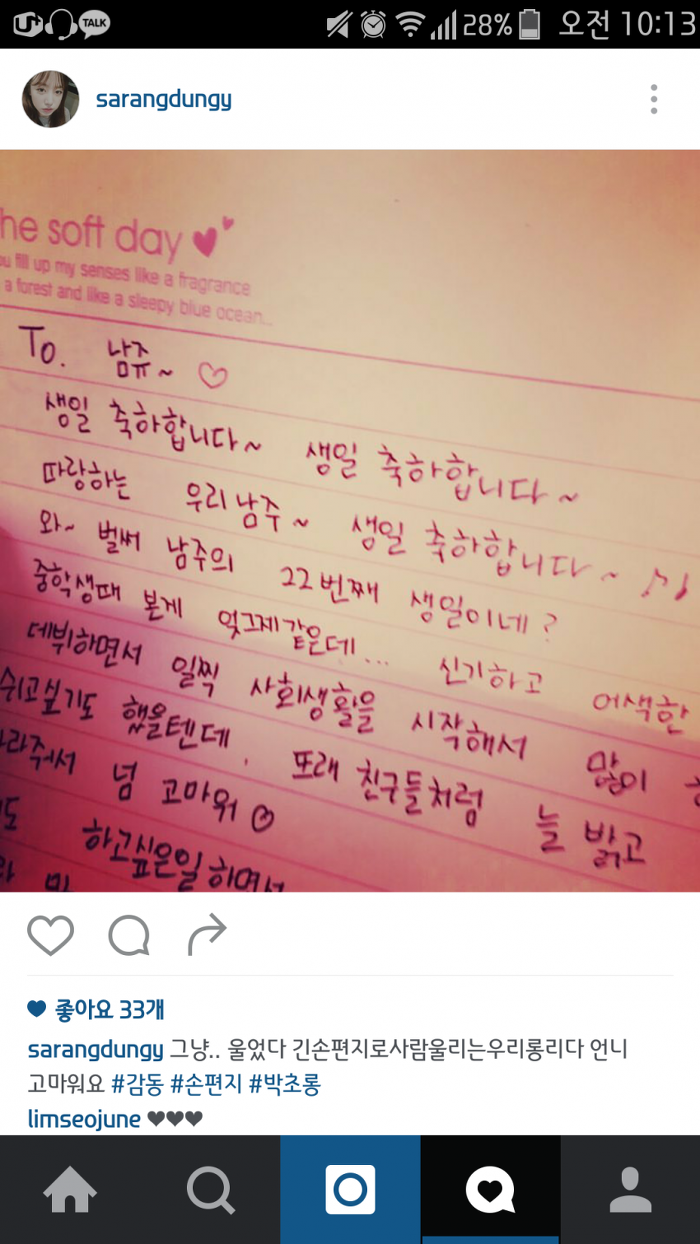 TALK 28% 오전 10:13
sarangdungy
he soft day
ou fill up my senses like a fragrance
a forest and like a sleepy blue ocean...
To. 남쥬~ ♡
생일 축하합니다~ 생일 축하합니다~
따랑하는 우리남주~ 생일 축하합니다~ ♪♪
와~ 벌써 남주의 22번째 생일이네?
중학생때 본게 엊그제같은데... 신기하고 어색한
데뷔하면서 일찍 사회생활을 시작해서 많이
쉬고싶기도 했을텐데, 또래 친구들처럼 늘 밝고
라줘서 넘 고마워 ♡
도 하고싶은일하면서
좋아요 33개
sarangdungy 그냥.. 울었다 긴손편지로사람울리는우리롱리다 언니
고마워요 #감동 #손편지 #박초롱
limseojune ♥♥♥